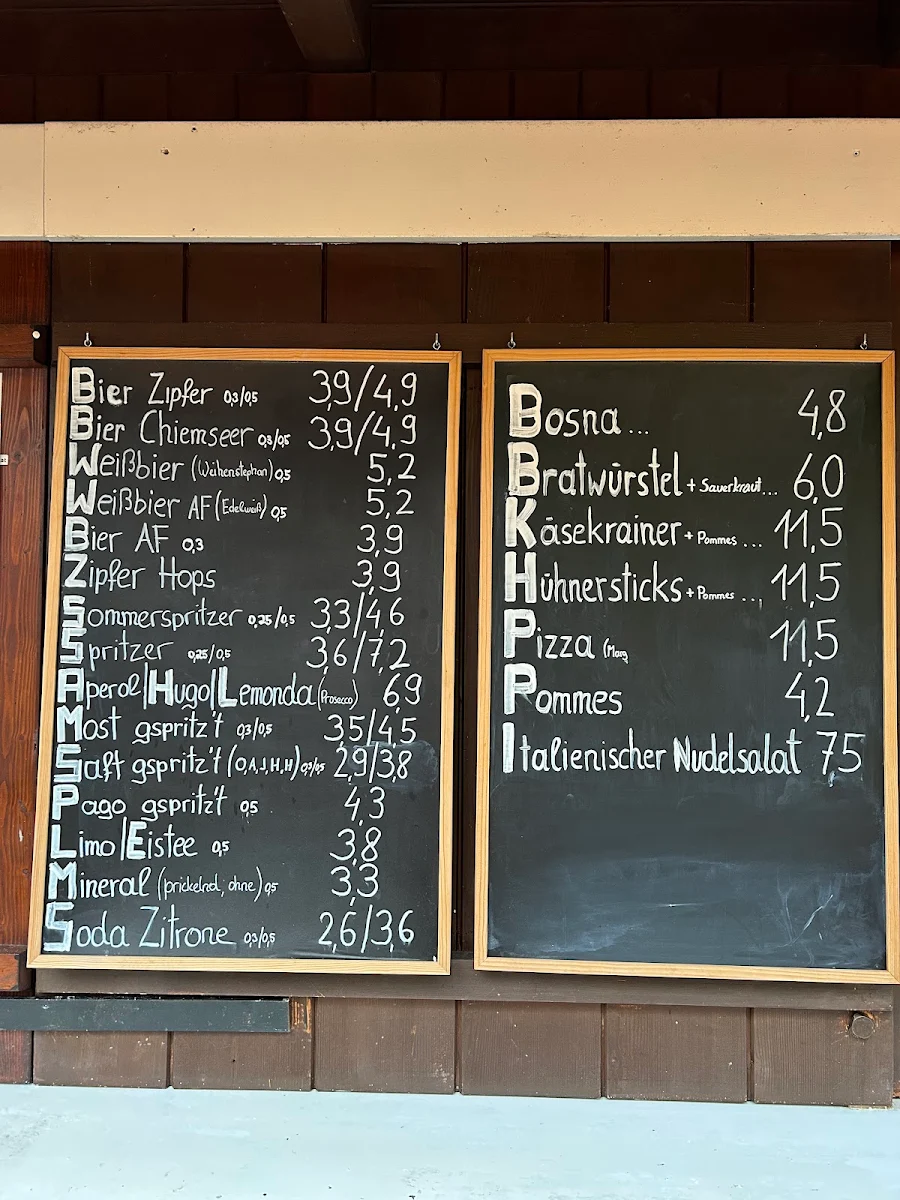 Bier Zipfer 0,3/0,5 3,9/4,9
Bier Chiemseer 0,3/0,5 3,9/4,9
Weißbier (Weihenstephan) 0,5 5,2
Weißbier AF (Edelweiß) 0,5 5,2
Bier AF 0,3 3,9
Zipfer Hops 3,9
Sommerspritzer 0,25/0,5 3,3/4,6
Spritzer 0,25/0,5 3,6/7,2
Aperol/Hugo/Lemonda (Prosecco) 6,9
Most gspritz't 0,3/0,5 3,5/4,5
Saft gspritz't (O,A,J,H,H) 0,3/0,5 2,9/3,8
Pago gspritz't 0,5 4,3
Limo/Eistee 0,5 3,8
Mineral (prickelnd, ohne) 0,5 3,3
Soda Zitrone 0,3/0,5 2,6/3,6
Bosna ... 4,8
Bratwürstel + Sauerkraut... 6,0
Käsekrainer + Pommes ... 11,5
Hühnersticks + Pommes ... 11,5
Pizza 11,5
Pommes 4,2
Italienischer Nudelsalat 7,5